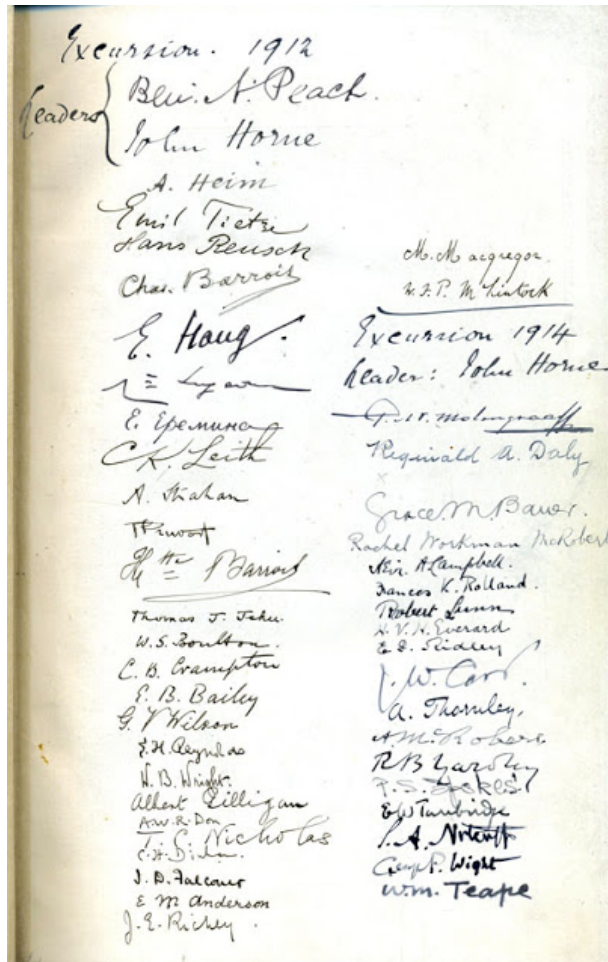 Excursion. 1912
Leaders
Ben. N. Peach.
John Horne
A. Heim
Emil Tietze
Hans Reusch
Chas. Barrois
E. Haug.
Е. Еремина
C. K. Leith
A. Strahan
Barrois
Thomas J. Jehu.
W. S. Boulton.
C. B. Crampton
E. B. Bailey
G. V Wilson
S. H. Reynolds
W. B. Wright.
Albert Gilligan
A.W.R. Don
T. C. Nicholas
J. D. Falconer
E M Anderson
J. E. Richey.
M. Macgregor.
W. F. P. McLintock
Excursion 1914
Leader: John Horne
Reginald A. Daly
Grace. M. Bauer.
Rachel Workman McRobert
A. Campbell.
Frances K. Rolland.
Robert Lunn
H. V. H. Everard
E. S. Ridley
J. W. Carr.
A. Thornley.
R B Yardley
E W Tunbridge
Wight
Wm. Teape